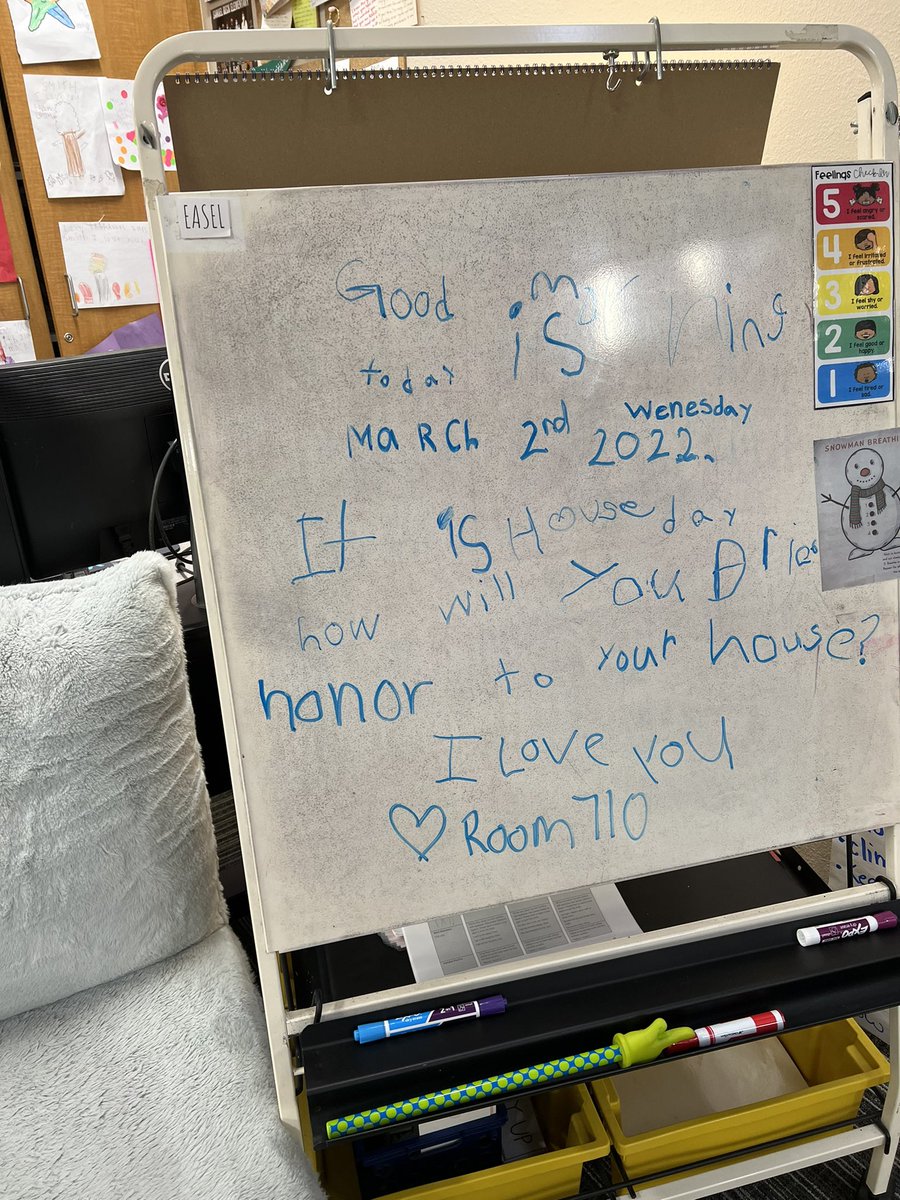 EASEL
Good morning
today is
Wenesday
MaRCh 2nd 2022.
It is House day
how will You Bring
honor to your house?
I Love you
♡ Room 710
Feelings Check-In
5 I feel angry or scared.
4 I feel irritated or frustrated.
3 I feel shy or worried.
2 I feel good or happy.
1 I feel tired or sad.
SNOWMAN BREATHI
EXPO
CUP